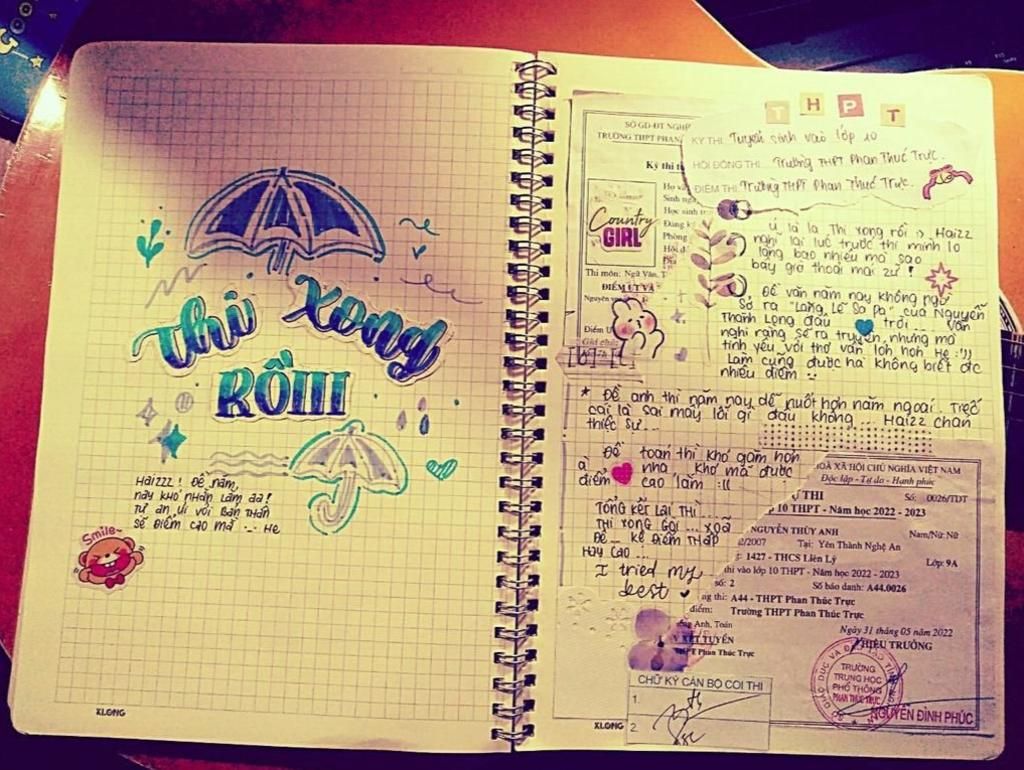 Thi Xong
RỒIII
Haizzz! Đề năm,
nay khó nhằn lắm aa!
Tự an ủi với bản thân
sẽ điểm cao mà -_- He
Smile~
XLONG
THPT
SỞ GD-ĐT NGHỆ
TRƯỜNG THPT PHAN
KỲ THI: Tuyển sinh vào lớp 10
HỘI ĐỒNG THI: Trường THPT Phan Thúc Trực.
ĐIỂM THI: Trường THPT Phan Thúc Trực.
Kỳ thi t
Họ và
Sinh ng
Học sinh t
Đăng k
Phòng
Hội đ
Địa
Country
GIRL
Thi môn: Ngữ Văn, T
ĐIỂM ƯT VÀ
Nguyện vọ
Điểm U
Ú la la Thi xong rồi :> Haizz
nghĩ lại lúc trước thi mình lo
lắng bao nhiêu mà sao
bây giờ thoải mái zư!
Đề văn năm nay không ngờ
Sở ra "Lặng Lẽ Sa Pa" của Nguyễn
Thành Long đâu trời... Vẫn
nghĩ rằng sẽ ra truyện, nhưng mà
tình yêu với thơ vẫn lớn hơn He :'))
Làm cũng được hà không biết đc
nhiêu điểm
* Đề anh thi năm nay dễ nuốt hơn năm ngoái. Tiếc
cái là sai mấy lỗi gì đâu không... Haizz chán
thiệc sự...
Đề toán thì khó gắm hơn
à nha khó mà được
điểm cao lắm :((
Tổng kết lại thì...
Thi xong gòi... xoã
Đê... kệ điểm thấp
hay cao...
I tried my
best
HOÀ XÃ HỘI CHỦ NGHĨA VIỆT NAM
Độc lập - Tự do - Hạnh phúc
Ự THI
Số: 0026/TDT
10 THPT - Năm học 2022 - 2023
NGUYỄN THÙY ANH
Nam/Nữ: Nữ
2/2007
Tại: Yên Thành Nghệ An
: 1427 - THCS Liên Lý
Lớp: 9A
thi vào lớp 10 THPT - Năm học 2022 - 2023
số: 2
Số báo danh: A44.0026
ng thi: A44 - THPT Phan Thúc Trực
điểm: Trường THPT Phan Thúc Trực
ng Anh, Toán
Ngày 31 tháng 05 năm 2022
XÉT TUYỂN
HIỆU TRƯỞNG
THPT Phan Thúc Trực
TRƯỜNG
TRUNG HỌC
PHỔ THÔNG
PHAN THÚC TRỰC
NGUYỄN ĐÌNH PHÚC
CHỮ KÝ CÁN BỘ COI THI
1.
2.
XLONG